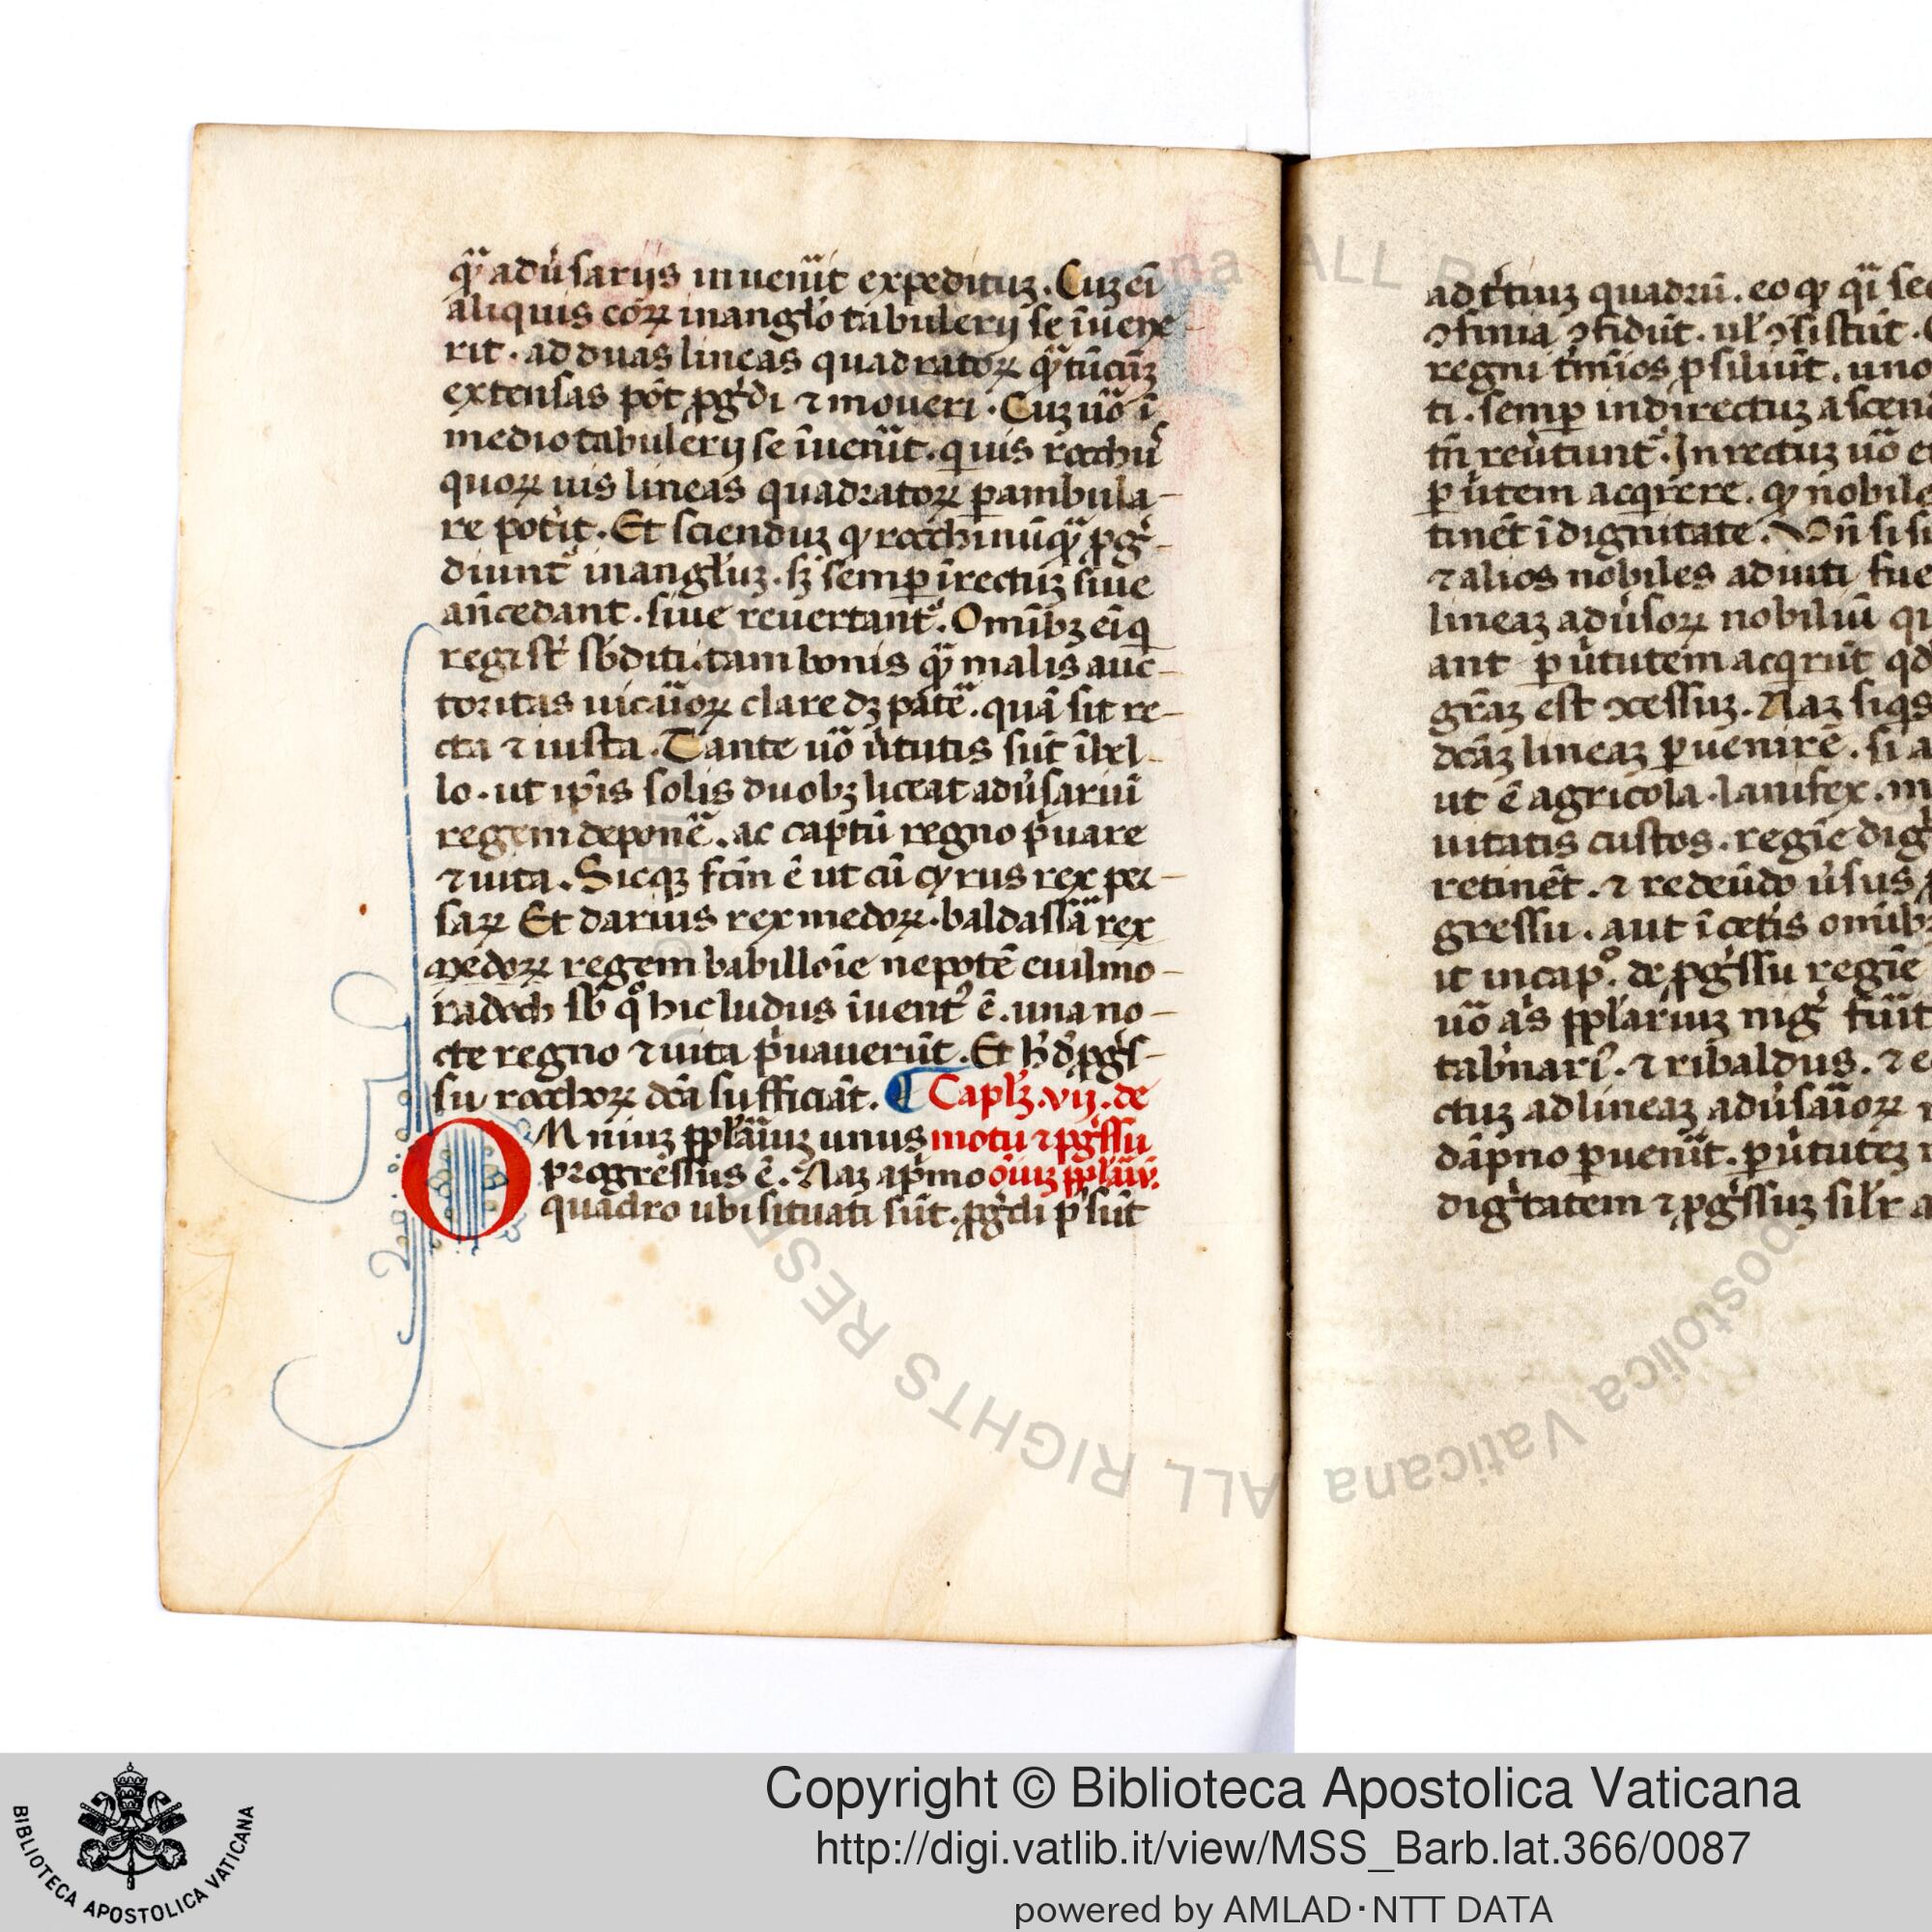 qͣ adu̾sarijs inueni̾t expedituz. Cuz ei̅
aliquis eoꝝ in anglo̾ tabulerij se i̅uene-
rit. ad duas lineas quadratoꝝ qͣtu̅cu̅z
extensas po̅t ꝓg̾di ⁊ moueri. Cuz uo̅ i̅
medio tabulerij se i̅uen̾it. quis rochu̅
quoꝝ uis lineas quadratoꝝ ꝑambula-
re pot̾it. Et scienduz ꝙ rochi nu̅qͣ ꝓg̾-
diunt᷑ in angl̾uz. sꝫ semꝑ i̅ rectuz siue
an̅cedant. siue reuertant᷑. Omi̅bꝫ ei̅ q
regi st̾ sb̾diti. tam bonis qͣ malis auc-
toritas uica̾ioꝝ clare dꝫ pate̾. qua̅ sit re-
cta ⁊ iusta. Tante uo̅ u̾tutis su̅t i̅ bel-
lo. ut ip̅is solis duobꝫ liceat adu̾sariu̅
regem depone̾. ac captu̅ regno p̾uare
⁊ uita. Sicqꝫ fc̅m e̅ ut cu̅ cyrus rex per-
saꝝ Et darius rex medoꝝ. baldassa̾ rex
medoꝝ regem babilloi̅e nepote̅ euilmo-
radoch sb̾ qͦ hic ludus i̅uent᷑ e̅. una no-
cte regno ⁊ uita p̾uaueru̅t. Et h̾ d̾ ꝓg̾s-
su rochoꝝ dc̅a sufficia̅t. ¶ Capl̾ꝫ. vij. de
OMniuz ppl̾a̾iuz unus motu ⁊ ꝓg̾ssu
progressus e̅. Naz a p̾mo oi̅uz ppl̾a̾iu̅.
quadro ubi situati su̅t. ꝓg̾di p̾su̅t
ad t̾tiuz quadru̅. eo ꝙ qͣi
ꝯfinia ꝯfidu̅t. ul̾ ꝯsistu̅t.
regni t̾mi̅os ꝑsiliu̅t. uno
ti. semꝑ in directuz
tn̅ reu̾tunt᷑. In rectuz uo̅
ꝑ u̾tutem acqrere. ꝙ
tine̅t i̅ dignitate. Vn̅ si
⁊ alios nobiles aduiti
lineaz adu̾soꝝ nobiliu̅
ant ꝑ u̾tutem acqru̅t qd
gr̅az est ꝯcessuz. Naz siqs
dc̅az lineaz ꝑuenire̅. si
ut e̅ agricola. lanifex.
uitatis custos. regie̅
retine̅t. ⁊ redeu̅do u̾sus
gressu. aut i̅ cet̾is omi̅bꝫ
it in capͦ. de ꝓg̾ssu regie̅
uo̅ a̾s ppl̾ariuz nig̾ fu̾it
tab̾nari᷑. ⁊ ribaldus. ⁊
ctuz ad lineaz adu̾sa̾ioꝝ
da̅pno ꝑuen̾it. ꝑ u̾tutez
dig̾tatem ⁊ ꝓg̾ssuz sil̾r
BIBLIOTECA APOSTOLICA VATICANA
Copyright © Biblioteca Apostolica Vaticana
http://digi.vatlib.it/view/MSS_Barb.lat.366/0087
powered by AMLAD·NTT DATA